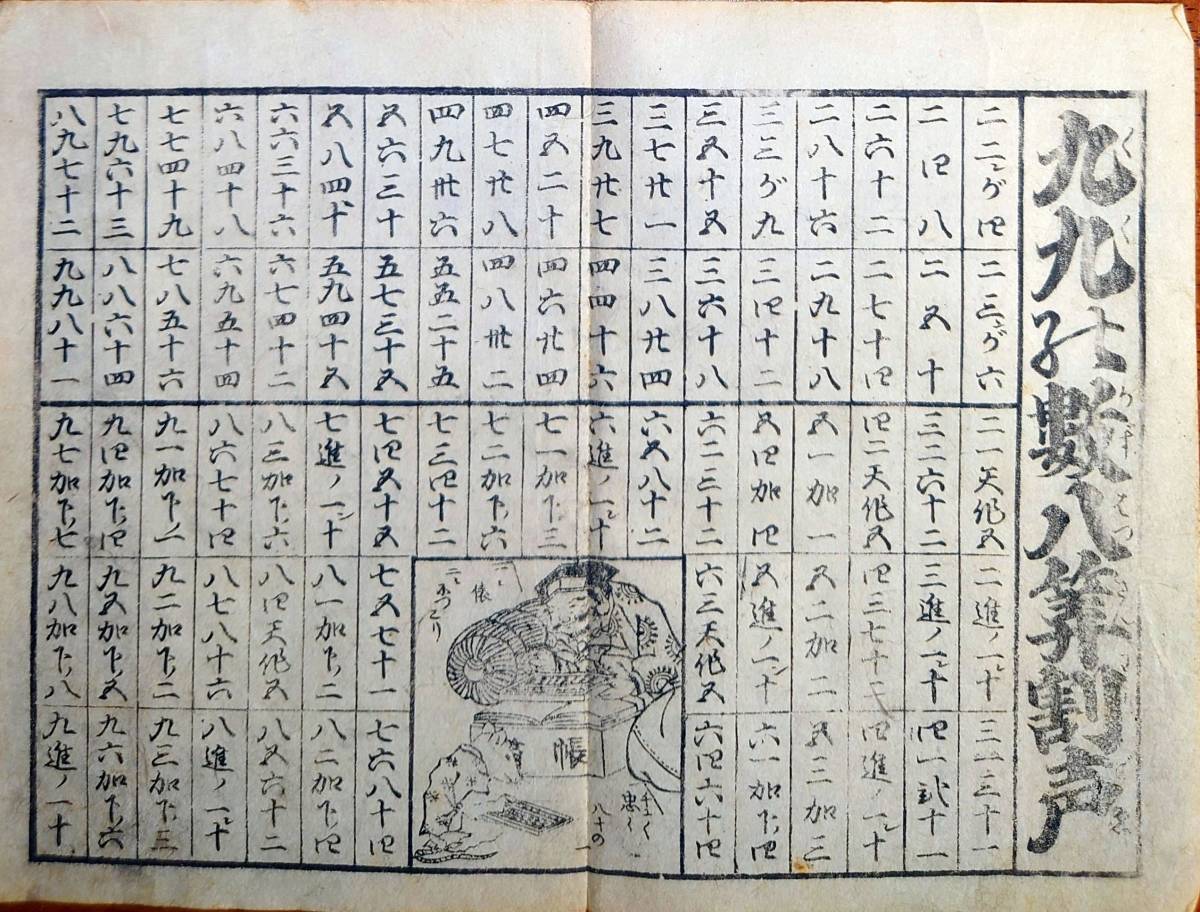 九九之子數八算割声
二二ガ四
二三ガ六
二四八
二五十
二六十二
二七十四
二八十六
二九十八
三三ガ九
三四十二
三五十五
三六十八
三七廿一
三八廿四
三九廿七
四四十六
四五二十
四六廿四
四七廿八
四八卅二
四九卅六
五五二十五
五六三十
五七三十五
五八四十
五九四十五
六六三十六
六七四十二
六八四十八
六九五十四
七七四十九
七八五十六
七九六十三
八八六十四
八九七十二
九九八十一
二一天作五
二進ノ一十
三一三十一
三二六十二
三進ノ一十
四一弐十二
四二天作五
四三七十二
四進ノ一十
五一加一
五二加二
五三加三
五四加四
五進ノ一十
六一加下四
六二三十二
六三天作五
六四六十四
六五八十二
六進ノ一十
七一加下三
七二加下六
七三四十二
七四五十五
七五七十一
七六八十四
七進ノ一十
八一加下二
八二加下四
八三加下六
八四天作五
八五六十二
八六七十四
八七八十六
八進ノ一十
九一加下一
九二加下二
九三加下三
九四加下四
九五加下五
九六加下六
九七加下七
九八加下八
九進ノ一十
俵
帳
八十の